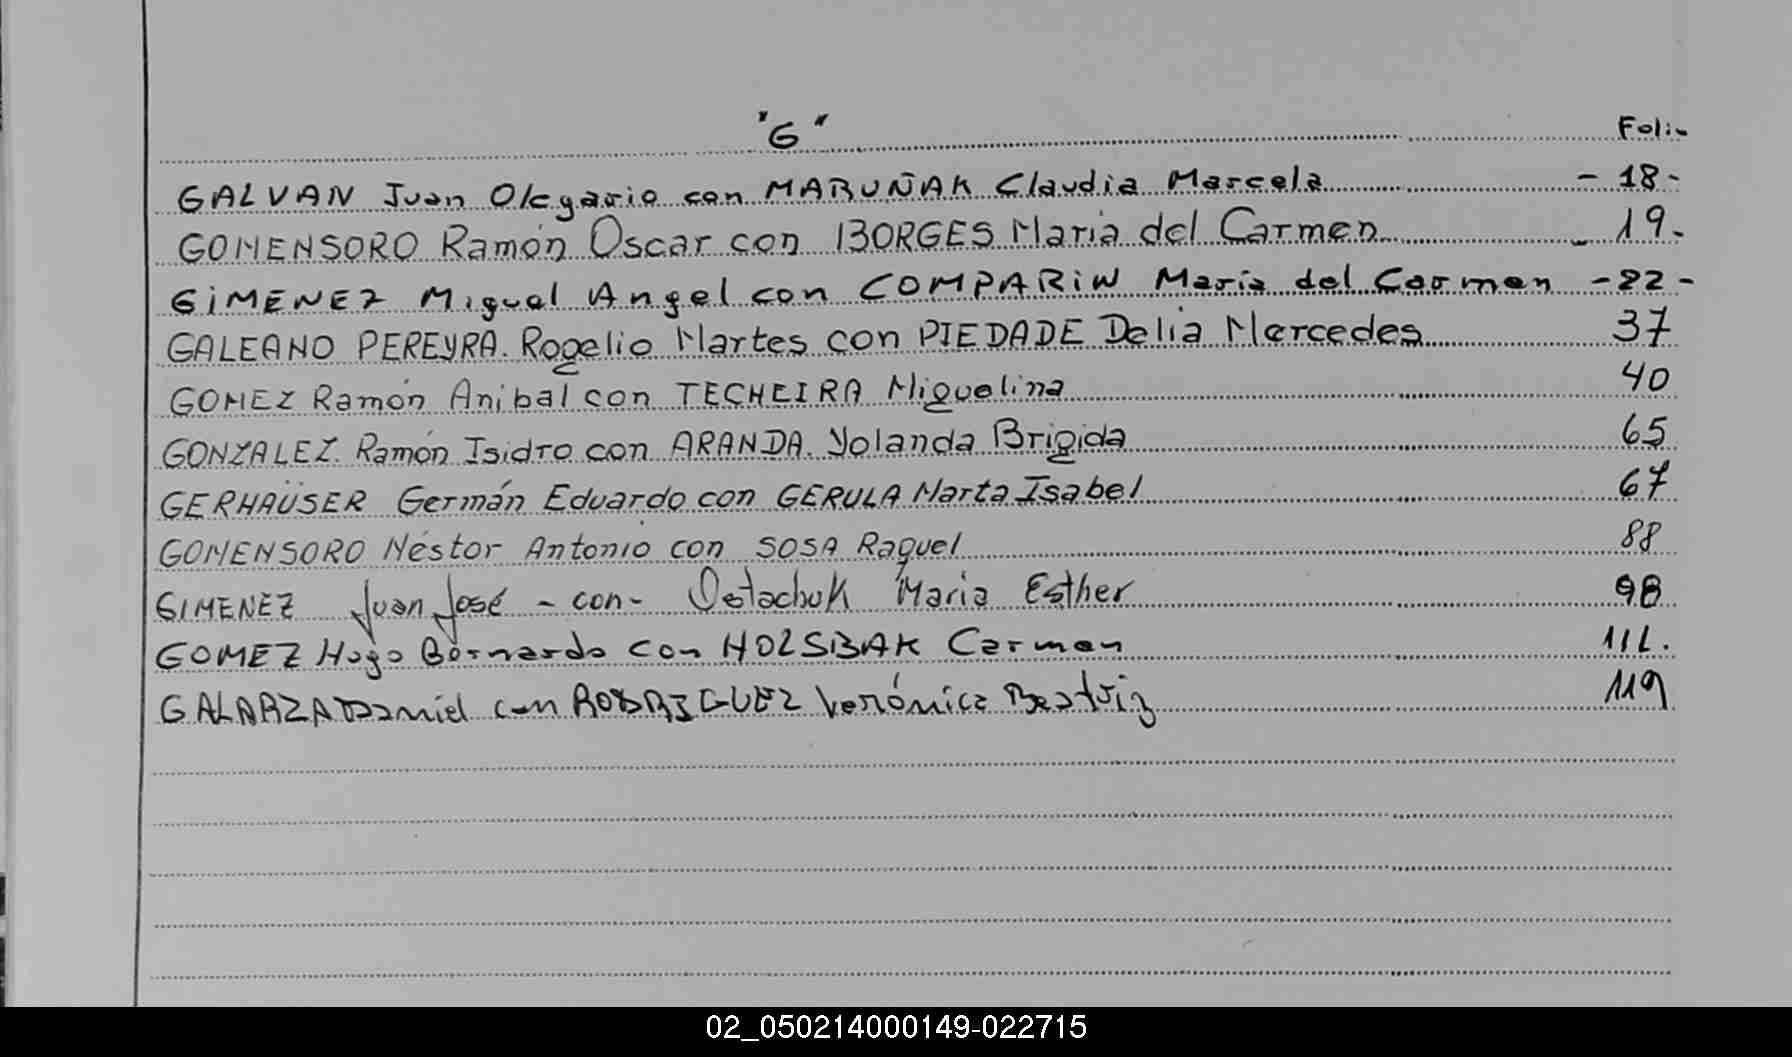 "G" Folio
GALVAN Juan Olegario con MARUÑAK Claudia Marcela - 18 -
GOMENSORO Ramón Oscar con BORGES Maria del Carmen - 19 -
GIMENEZ Miguel Angel con COMPARIN María del Carmen - 22 -
GALEANO PEREYRA. Rogelio Martes con PIEDADE Delia Mercedes 37
GOMEZ Ramón Anibal con TECHEIRA Miguelina 40
GONZALEZ. Ramón Isidro con ARANDA. Yolanda Brigida 65
GERHAÜSER Germán Eduardo con GERULA Marta Isabel 67
GOMENSORO Néstor Antonio con SOSA Raquel 88
GIMENEZ Juan José - con - Ostachuk Maria Esther 98
GOMEZ Hugo Bernardo con HOLSBAK Carmen
GALARZA Daniel con RODRIGUEZ Verónica Beatriz 119
02_050214000149-022715